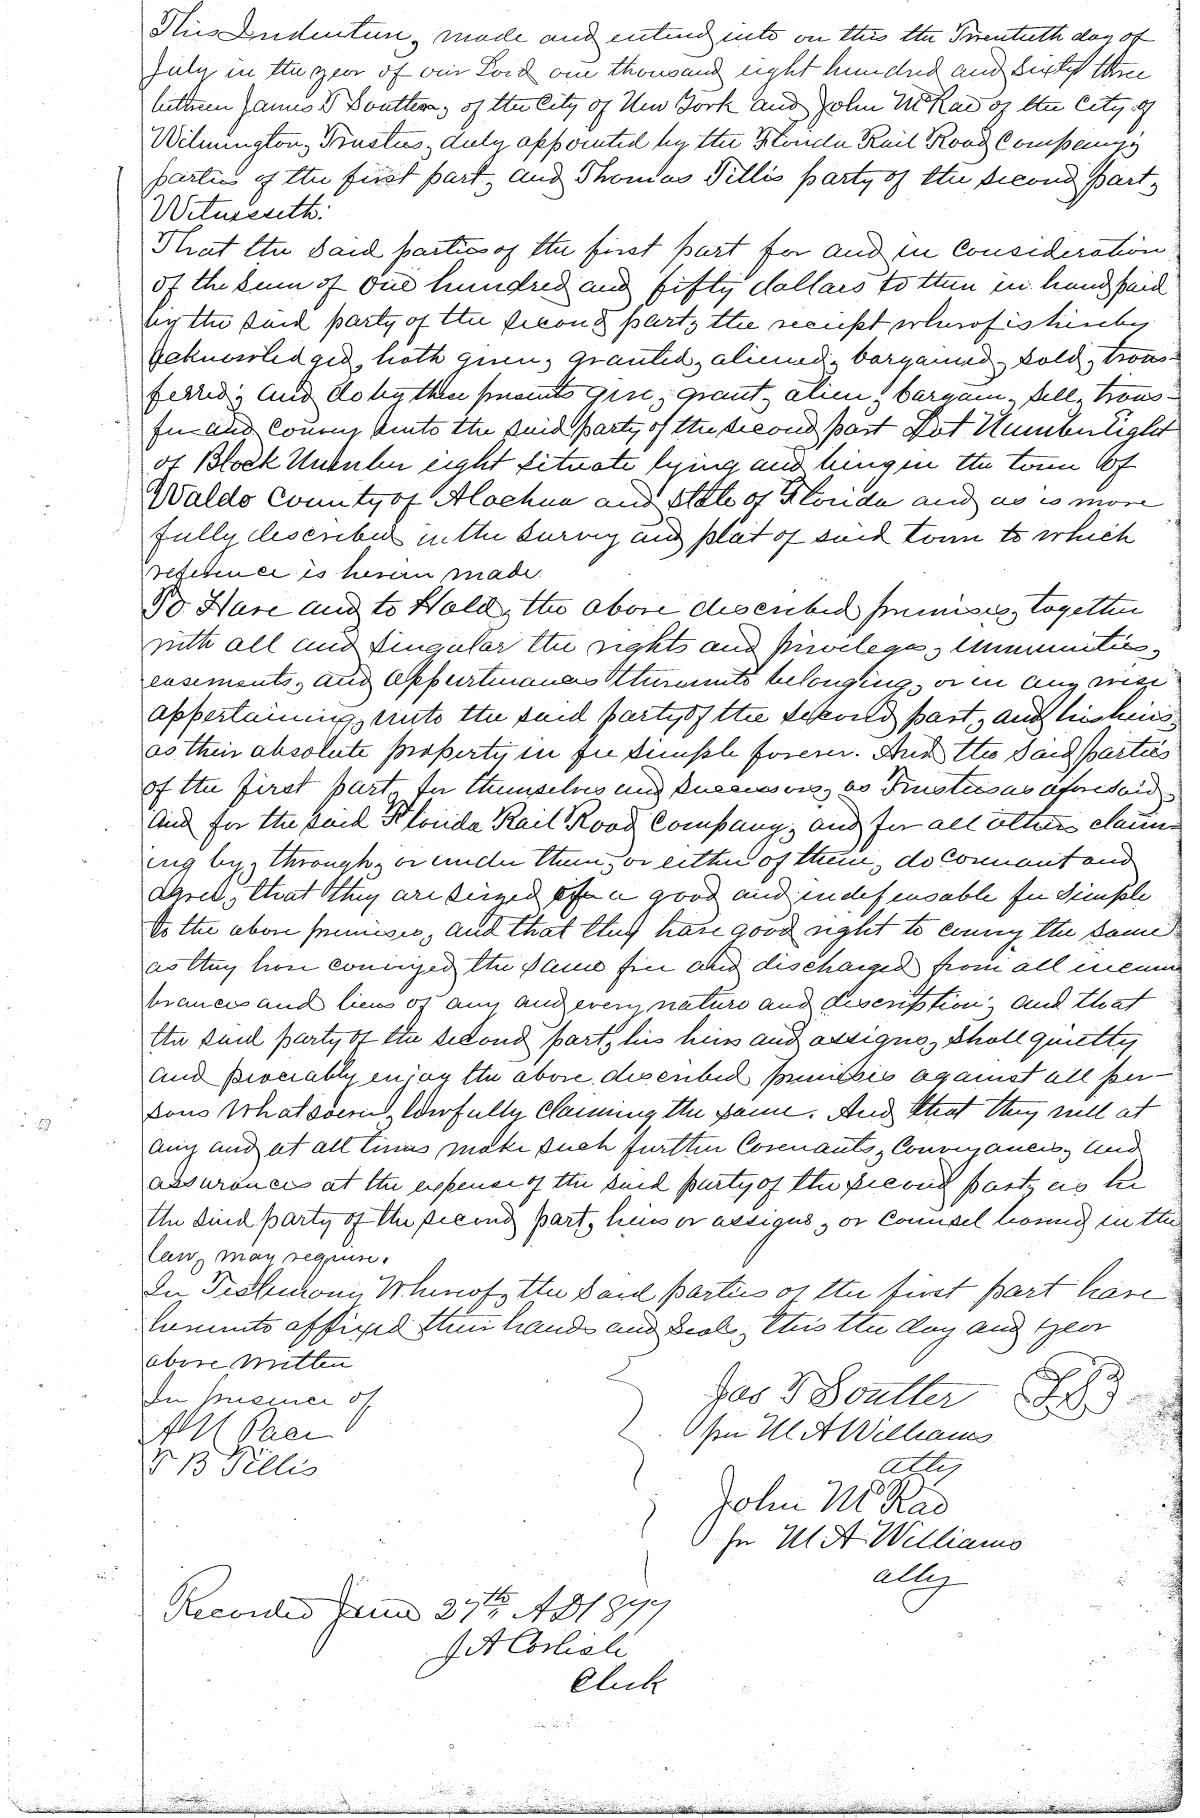 This Indenture, made and entered into on this the Twentieth day of
July in the year of our Lord one thousand eight hundred and Sixty three
between James T Soutter, of the City of New York and John McRae of the City of
Wilmington, Trustees, duly appointed by the Florida Rail Road Company,
parties of the first part, and Thomas Tillis party of the second part,
Witnesseth:
That the Said parties of the first part for and in Consideration
of the Sum of One hundred and fifty dollars to them in hand paid
by the said party of the second part, the receipt whereof is hereby
Acknowledged, hath given, granted, aliened, bargained, sold, trans-
ferred, and do by these presents give, grant, alien, bargain, sell, trans-
fer and Convey unto the said party of the second part Lot Number Eight
of Block Number eight situate lying and being in the town of
Waldo County of Alachua and State of Florida and as is more
fully described in the survey and plat of said town to which
reference is herein made.
To Have and to Hold, the above described premises, together
with all and Singular the rights and privileges, immunities,
easements, and appurtenances thereunto belonging, or in any wise
appertaining, unto the said party of the second part, and his heirs,
as their absolute property in fee simple forever. And the said parties
of the first part, for themselves and Successors, as Trustees as aforesaid,
and for the said Florida Rail Road Company, and for all others claim-
ing by, through, or under them, or either of them, do Covenant and
agree, that they are seized of a good and indefensable fee Simple
to the above premises, and that they have good right to convey the same
as they have conveyed the same free and discharged from all incum
brances and liens of any and every nature and description; and that
the said party of the second part, his heirs and assigns, shall quietly
and peaceably enjoy the above described premises against all per-
sons whatsoever, lawfully claiming the same. And that they will at
any and at all times make such further Covenants, Conveyances, and
assurances at the expense of the said party of the second part, as he
the said party of the second part, heirs or assigns, or counsel learned in the
law, may require.
In Testimony Whereof, the Said parties of the first part have
hereunto affixed their hands and Seals, this the day and year
above written
In presence of
Jas T Soutter
per M A Williams
T B Tillis
atty
John McRae
per M A Williams
atty
Recorded June 27th AD 1877
J A Carlisle
Clerk